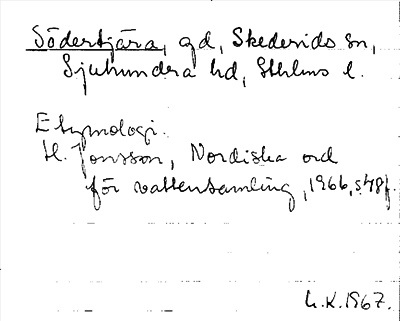 Södertjära, gd, Skederids sn,
Sjuhundra hd, Sthlms l.
Etymologi.
H. Jonsson, Nordiska ord
för vattensamling, 1966, s. 48f.
L.K. 1967.